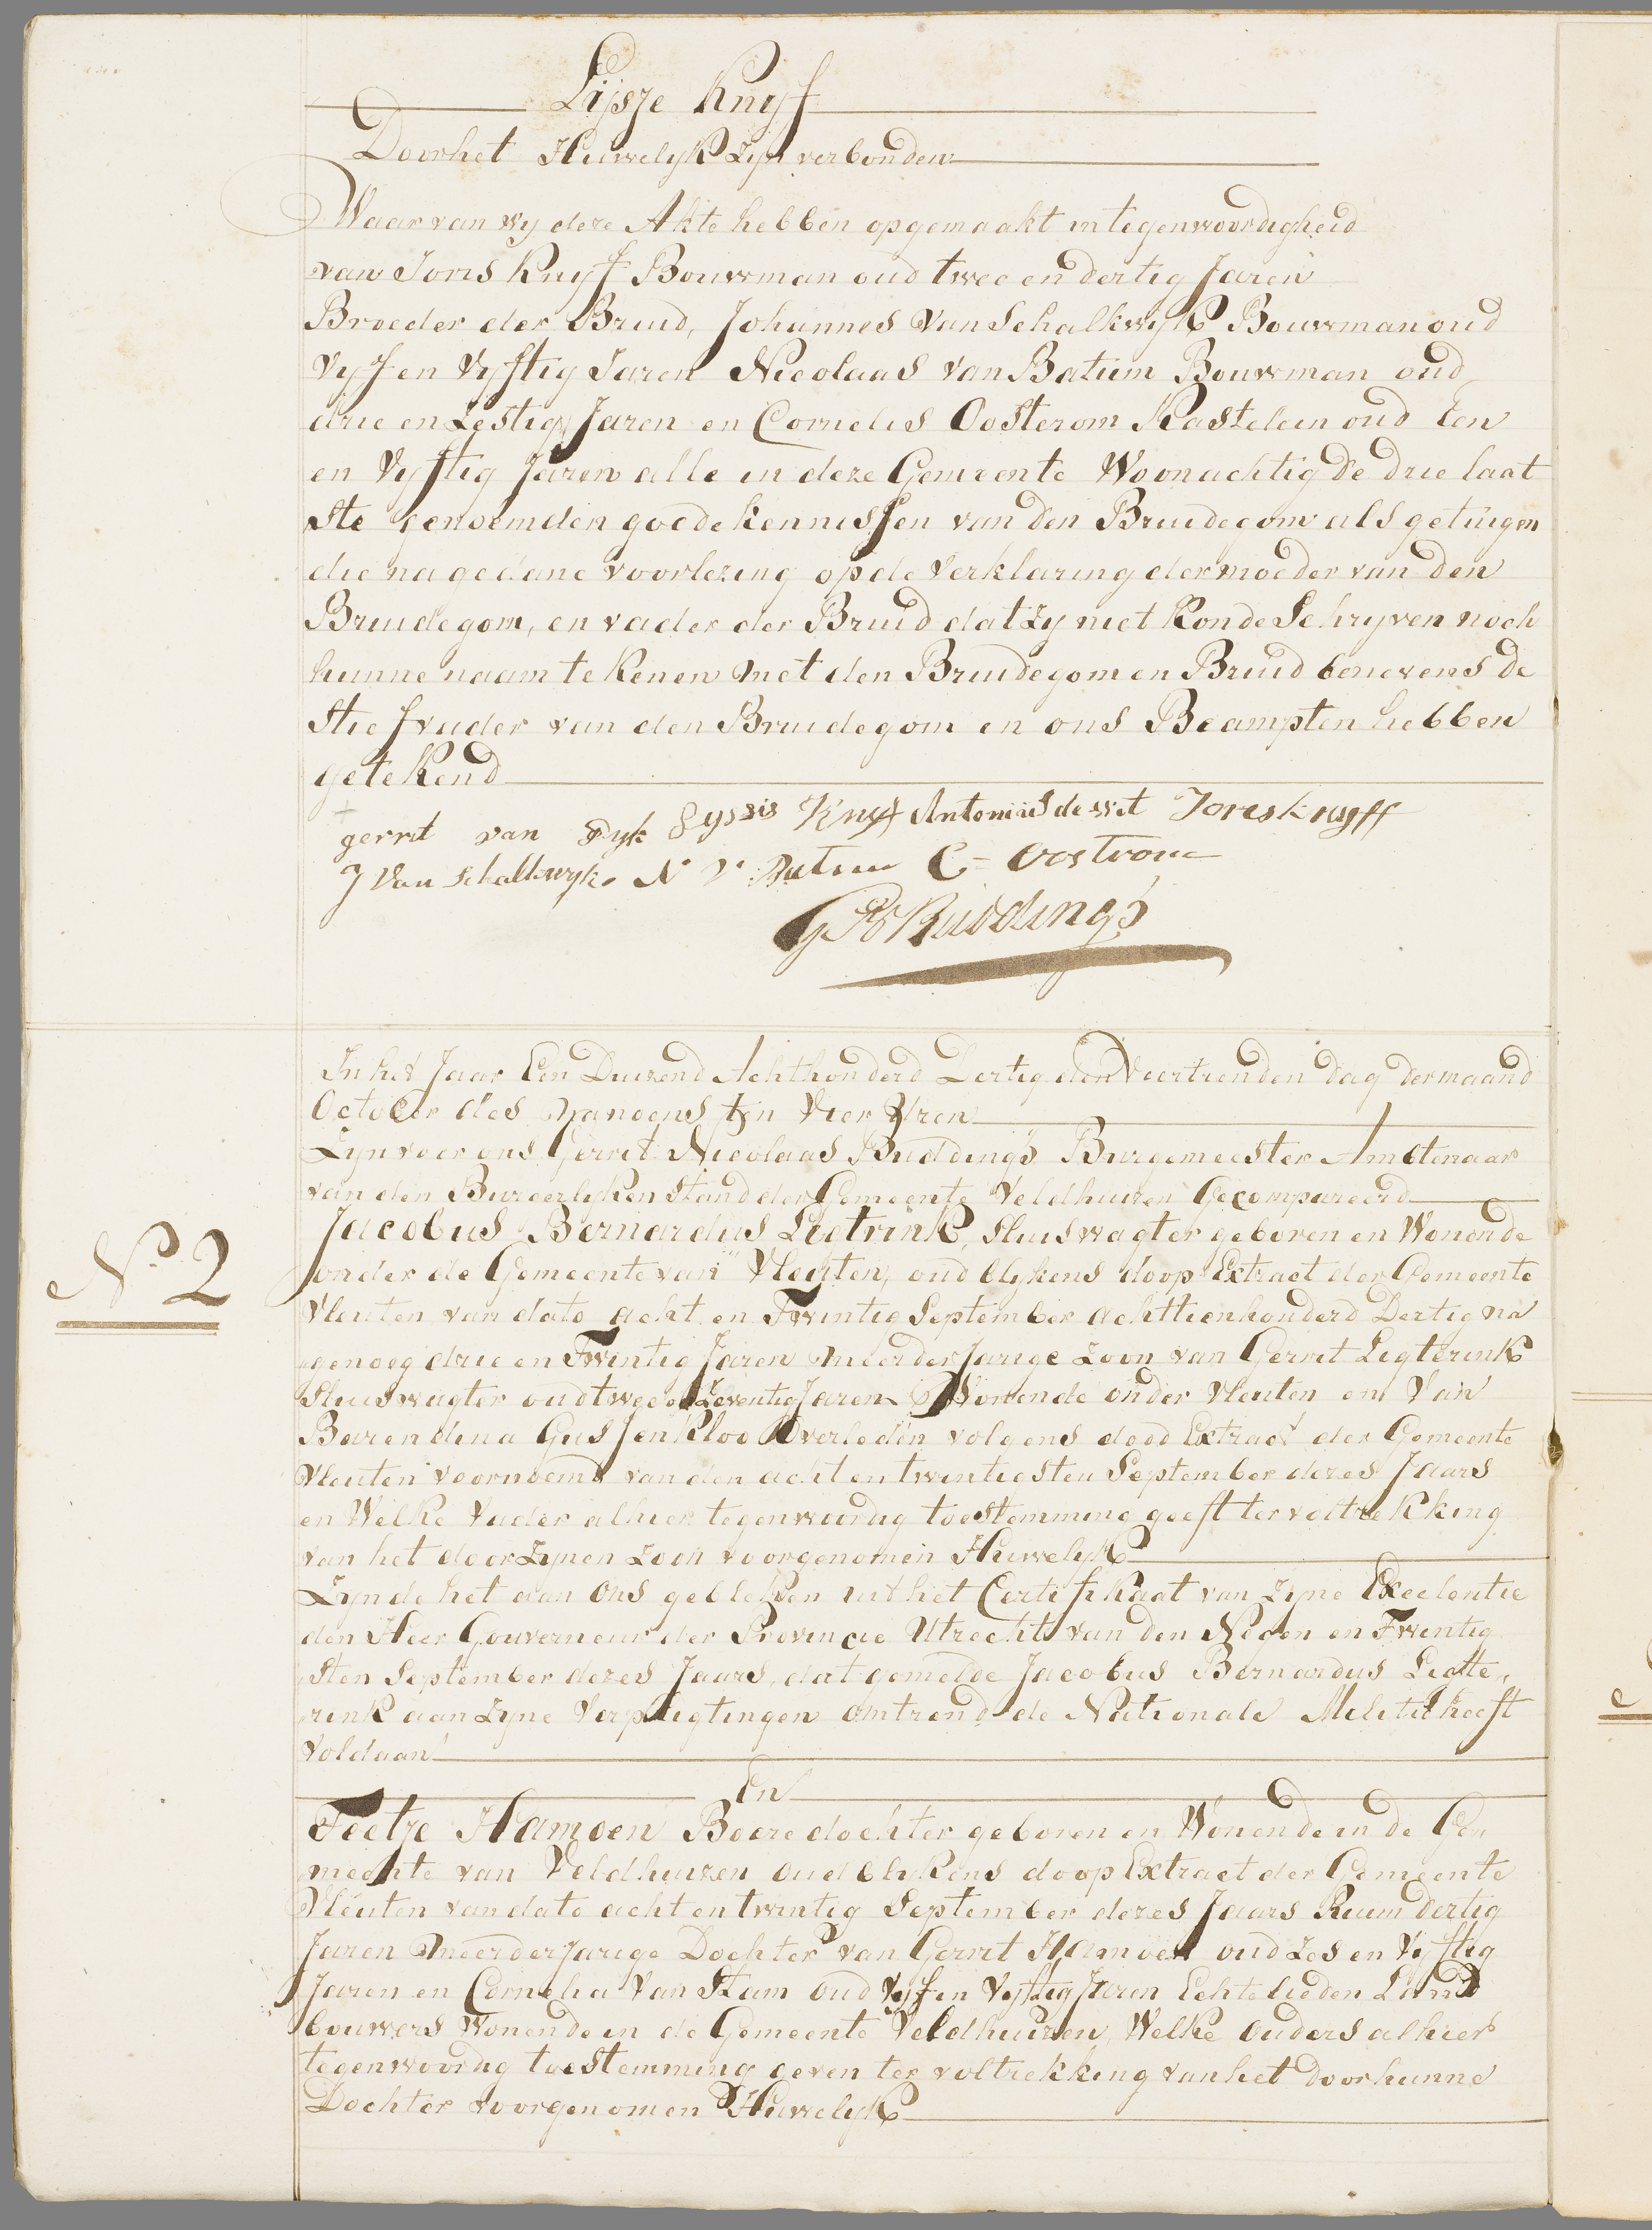 Lijsje Knyf
Door het Huwelyk Zyn verbonden
Waar van wy deze Akte hebben opgemaakt in tegenwoordigheid
van Joris Knyf Bouwman oud twee en dertig Jaren
Broeder der Bruid, Johannes Van Schalkwyk Bouwman oud
Vyf en Vyftig Jaren Nicolaas Van Batum Bouwman oud
drie en Zestig Jaren en Cornelis Oosterom Kastelein oud Een
en Vyftig Jaren alle in deze Gemeente Woonachtig de drie laat
ste genoemden goede kennissen van den Bruidegom als getuigen
die na gedane voorlezing op de Verklaring der moeder van den
Bruidegom, en vader der Bruid dat Zy niet Konde Schryven noch
hunne naam tekenen met den Bruidegom en Bruid benevens de
Stiefvader van den Bruidegom en ons Beampten hebben
getekend
gerrit van Dyk Lyssis Knyf Antonius de wit Joris knyff
J Van Schalkwyk N V Batum C Oostrom
G N Buddingh
In het Jaar Een Duizend Achthonderd Dertig den Veertienden dag der maand
October des Namoens ten Vier Uren
Zyn voor ons Gerrit Nicolaas Buddingh Burgemeester Ambtenaar
van den Burgerlyken Stand der Gemeente Veldhuizen Gecompareerd
N.º 2
Jacobus Bernardus Ligtrink, Sluiswagter geboren en Wonende
onder de Gemeente van Vleuten, oud blykens doop Extract der Gemeente
Vleuten van dato acht en Twintig September achttienhonderd Dertig na
genoeg drie en Twintig Jaren meerderjarige Zoon van Gerrit Ligterink
Sluiswagter oud twee en Zeventig Jaren Wonende onder Vleuten en Van
Barendina Gussenkloo Overleden volgens dood Extract der Gemeente
Vleuten voornoemd van den acht en twintigsten September dezes Jaars
en Welke Vader alhier tegenwoordig toestemming geeft ter voltrekking
van het door Zynen Zoon voorgenomen Huwelyk
Zynde het aan Ons gebleken uit het Certifikaat van Zyne Excelentie
den Heer Gouverneur der Provincie Utrecht van den Negen en Twintig
sten September dezes Jaars, dat gemelde Jacobus Bernardus Ligte,
rink aan Zyne Verpligtingen omtrend de Nationale Militie heeft
Voldaan
En
Feetje Hamoen Boeredochter geboren en Wonende in de Ge,
meente van Veldhuizen oud blykens doop Extract der Gemeente
Vleuten van dato acht en twintig September dezes Jaars Ruim dertig
Jaren meerderjarige Dochter van Gerrit Hamoen oud Zes en Vyftig
Jaren en Cornelia Van Stam oud Vyf en Vyftig Jaren Echtelieden Land
bouwers Wonende in de Gemeente Veldhuizen, Welke Ouders alhier
tegenwoordig toestemming geven ter voltrekking van het door hunne
Dochter voorgenomen Huwelyk